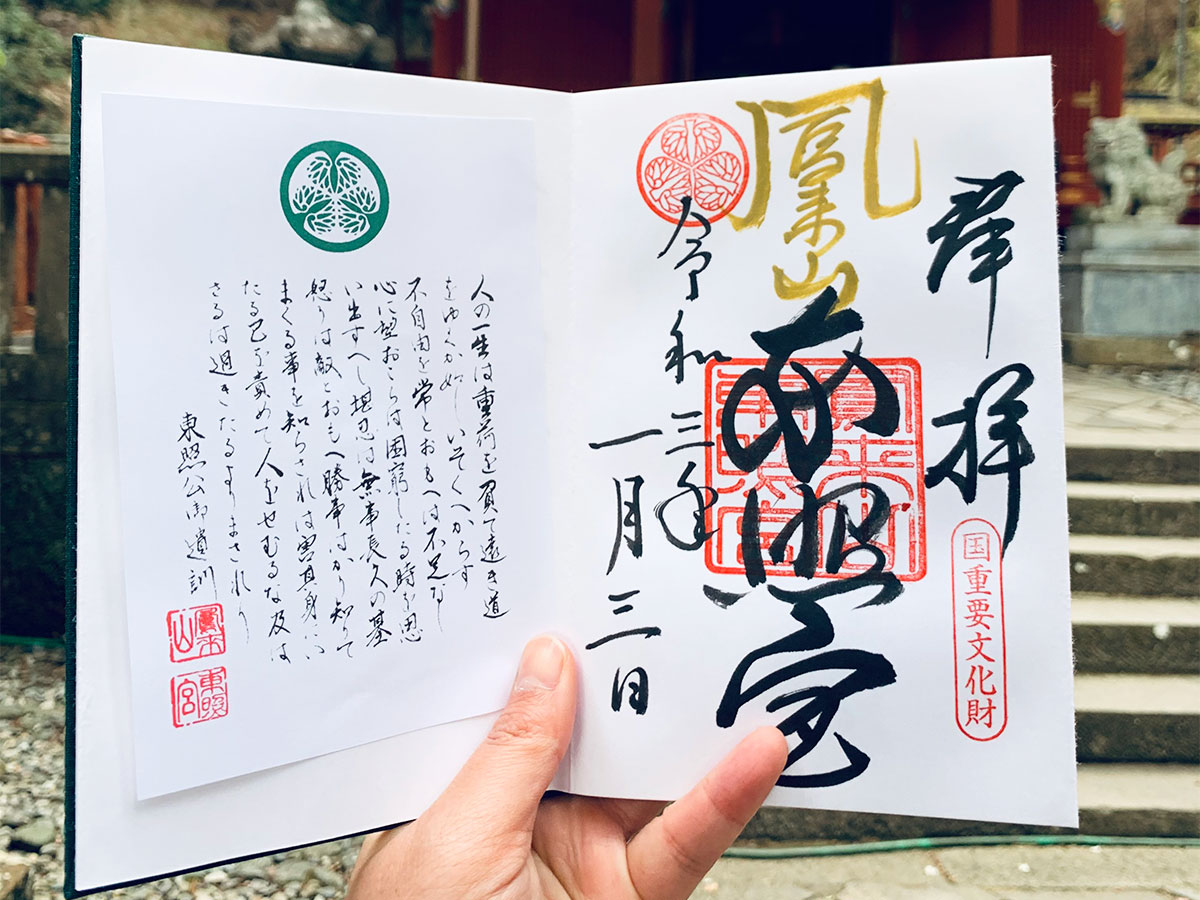 奉拝
国重要文化財
鳳来山
東照宮
令和三年
一月三日
人の一生は重荷を負て遠き道
をゆくか如しいそくへからす
不自由を常とおもへは不足なし
心に望おこらは困窮したる時を思
い出すへし堪忍は無事長久の基
怒りは敵とおもへ勝事はかり知りて
まくる事を知らされは害其身にい
たる己を責めて人をせむるな及は
さるは過きたるよりまされり
東照公御遺訓
鳳来山
東照宮